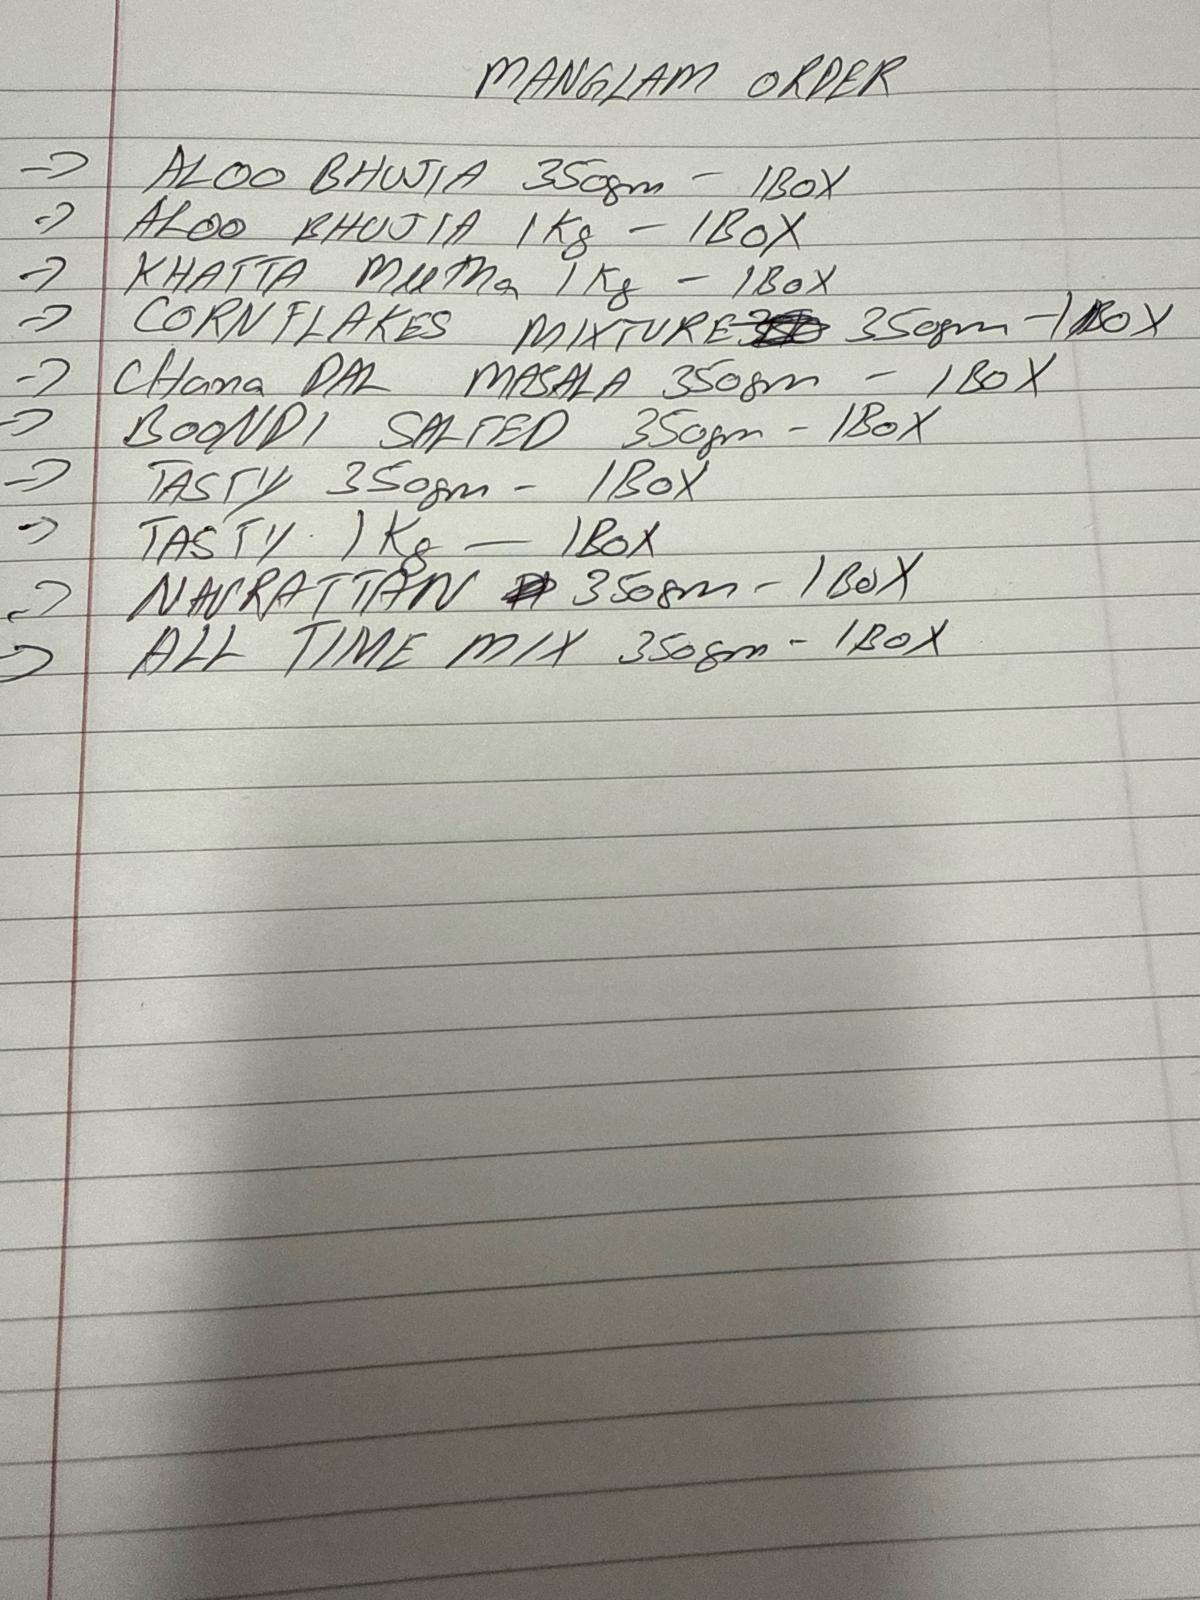 MANGLAM ORDER
→ ALOO BHUJIA 350gm - 1BOX
→ ALOO BHUJIA 1Kg - 1BOX
→ KHATTA Meetha 1Kg - 1BOX
→ CORNFLAKES MIXTURE 350gm - 1BOX
→ CHana DAL MASALA 350gm - 1BOX
→ BOONDI SALTED 350gm - 1BOX
→ TASTY 350gm - 1BOX
→ TASTY 1Kg - 1BOX
→ NAVRATTAN 350gm - 1BOX
→ ALL TIME MIX 350gm - 1BOX